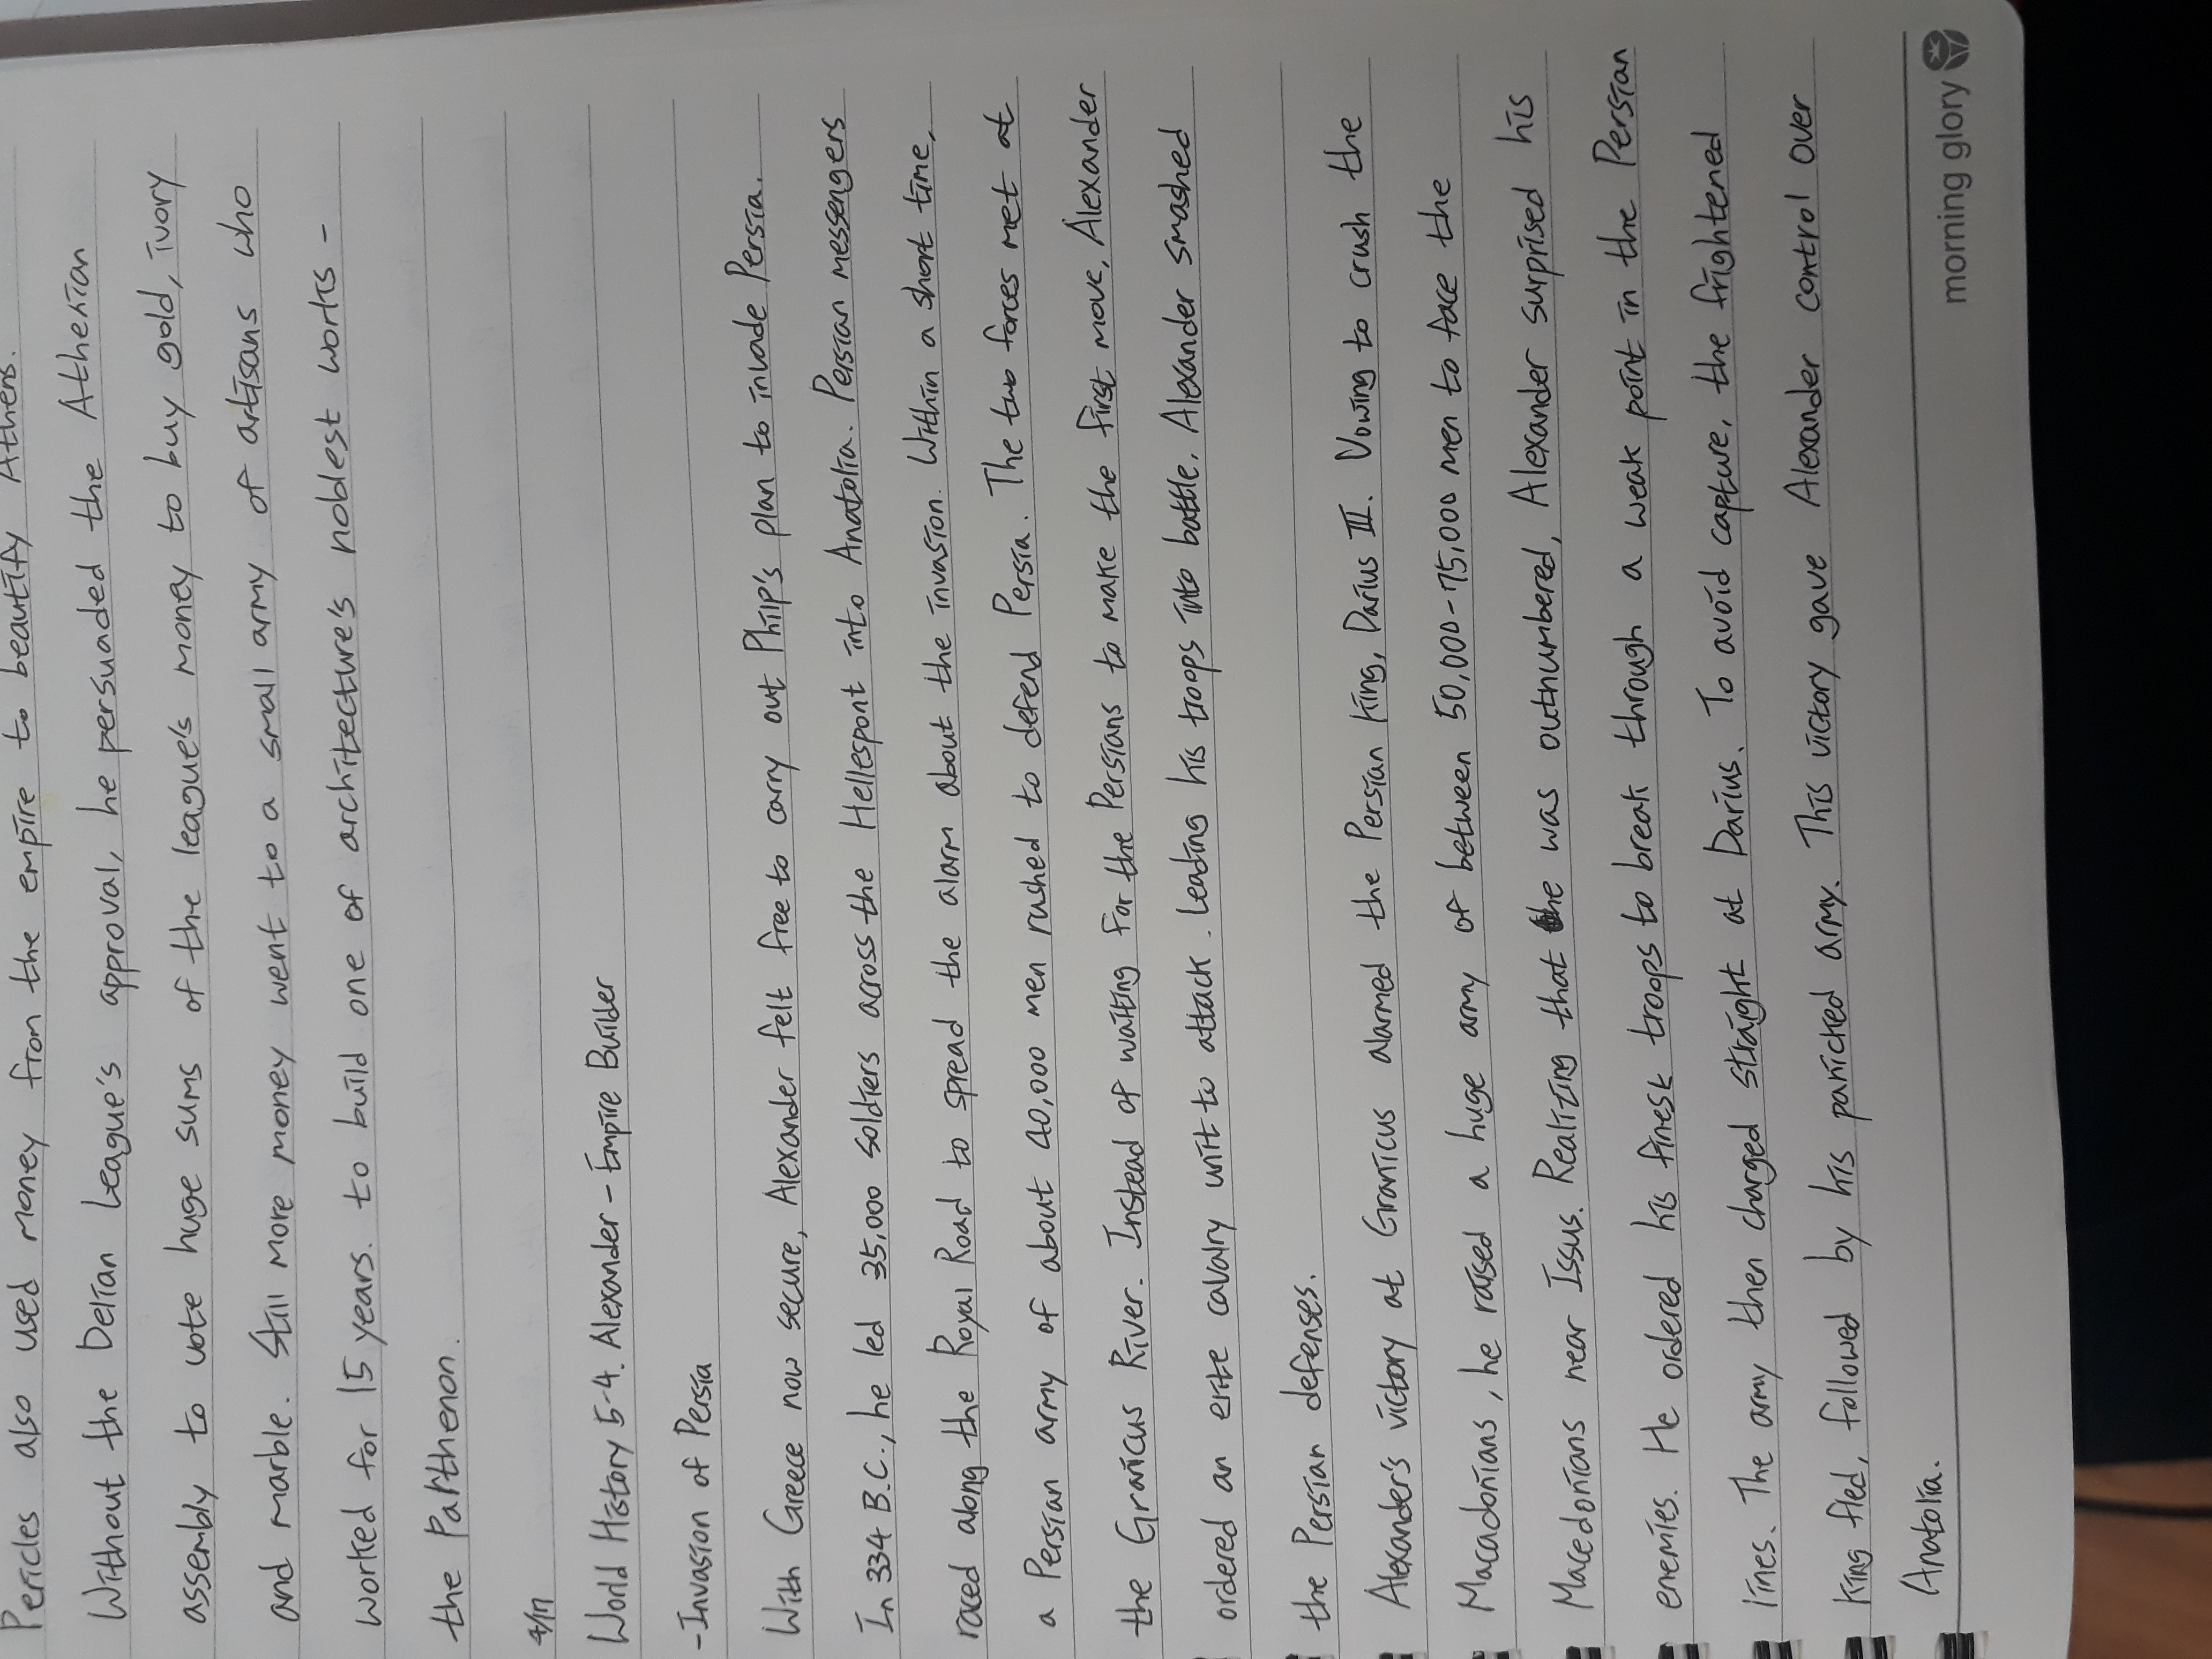 Pericles also used money from the empire to beautify Athens.
Without the Delian League's approval, he persuaded the Athenian
assembly to vote huge sums of the league's money to buy gold, ivory
and marble. Still more money went to a small army of artisans who
worked for 15 years. to build one of architecture's noblest works -
the Parthenon.
4/17
World History 5-4. Alexander - Empire Builder
- Invasion of Persia
With Greece now secure, Alexander felt free to carry out Phlip's plan to invade Persia.
In 334 B.C., he led 35,000 soldiers across the Hellespont into Anatolia. Persian messengers
raced along the Royal Road to spread the alarm about the invasion. Within a short time,
a Persian army of about 40,000 men rushed to defend Persia. The two forces met at
the Granicus River. Instead of waiting for the Persians to make the first move, Alexander
ordered an elite calvalry unit to attack. Leading his troops into battle, Alexander smashed
the Persian defenses.
Alexander's victory at Granicus alarmed the Persian king, Darius III. Vowing to crush the
Macadonians, he raised a huge army of between 50,000-75,000 men to face the
Macedonians near Issus. Realizing that he was outnumbered, Alexander surprised his
enemies. He ordered his finest troops to break through a weak point in the Persian
lines. The army then charged straight at Darius. To avoid capture, the frightened
king fled, followed by his panicked army. This victory gave Alexander control over
Anatolia.
morning glory